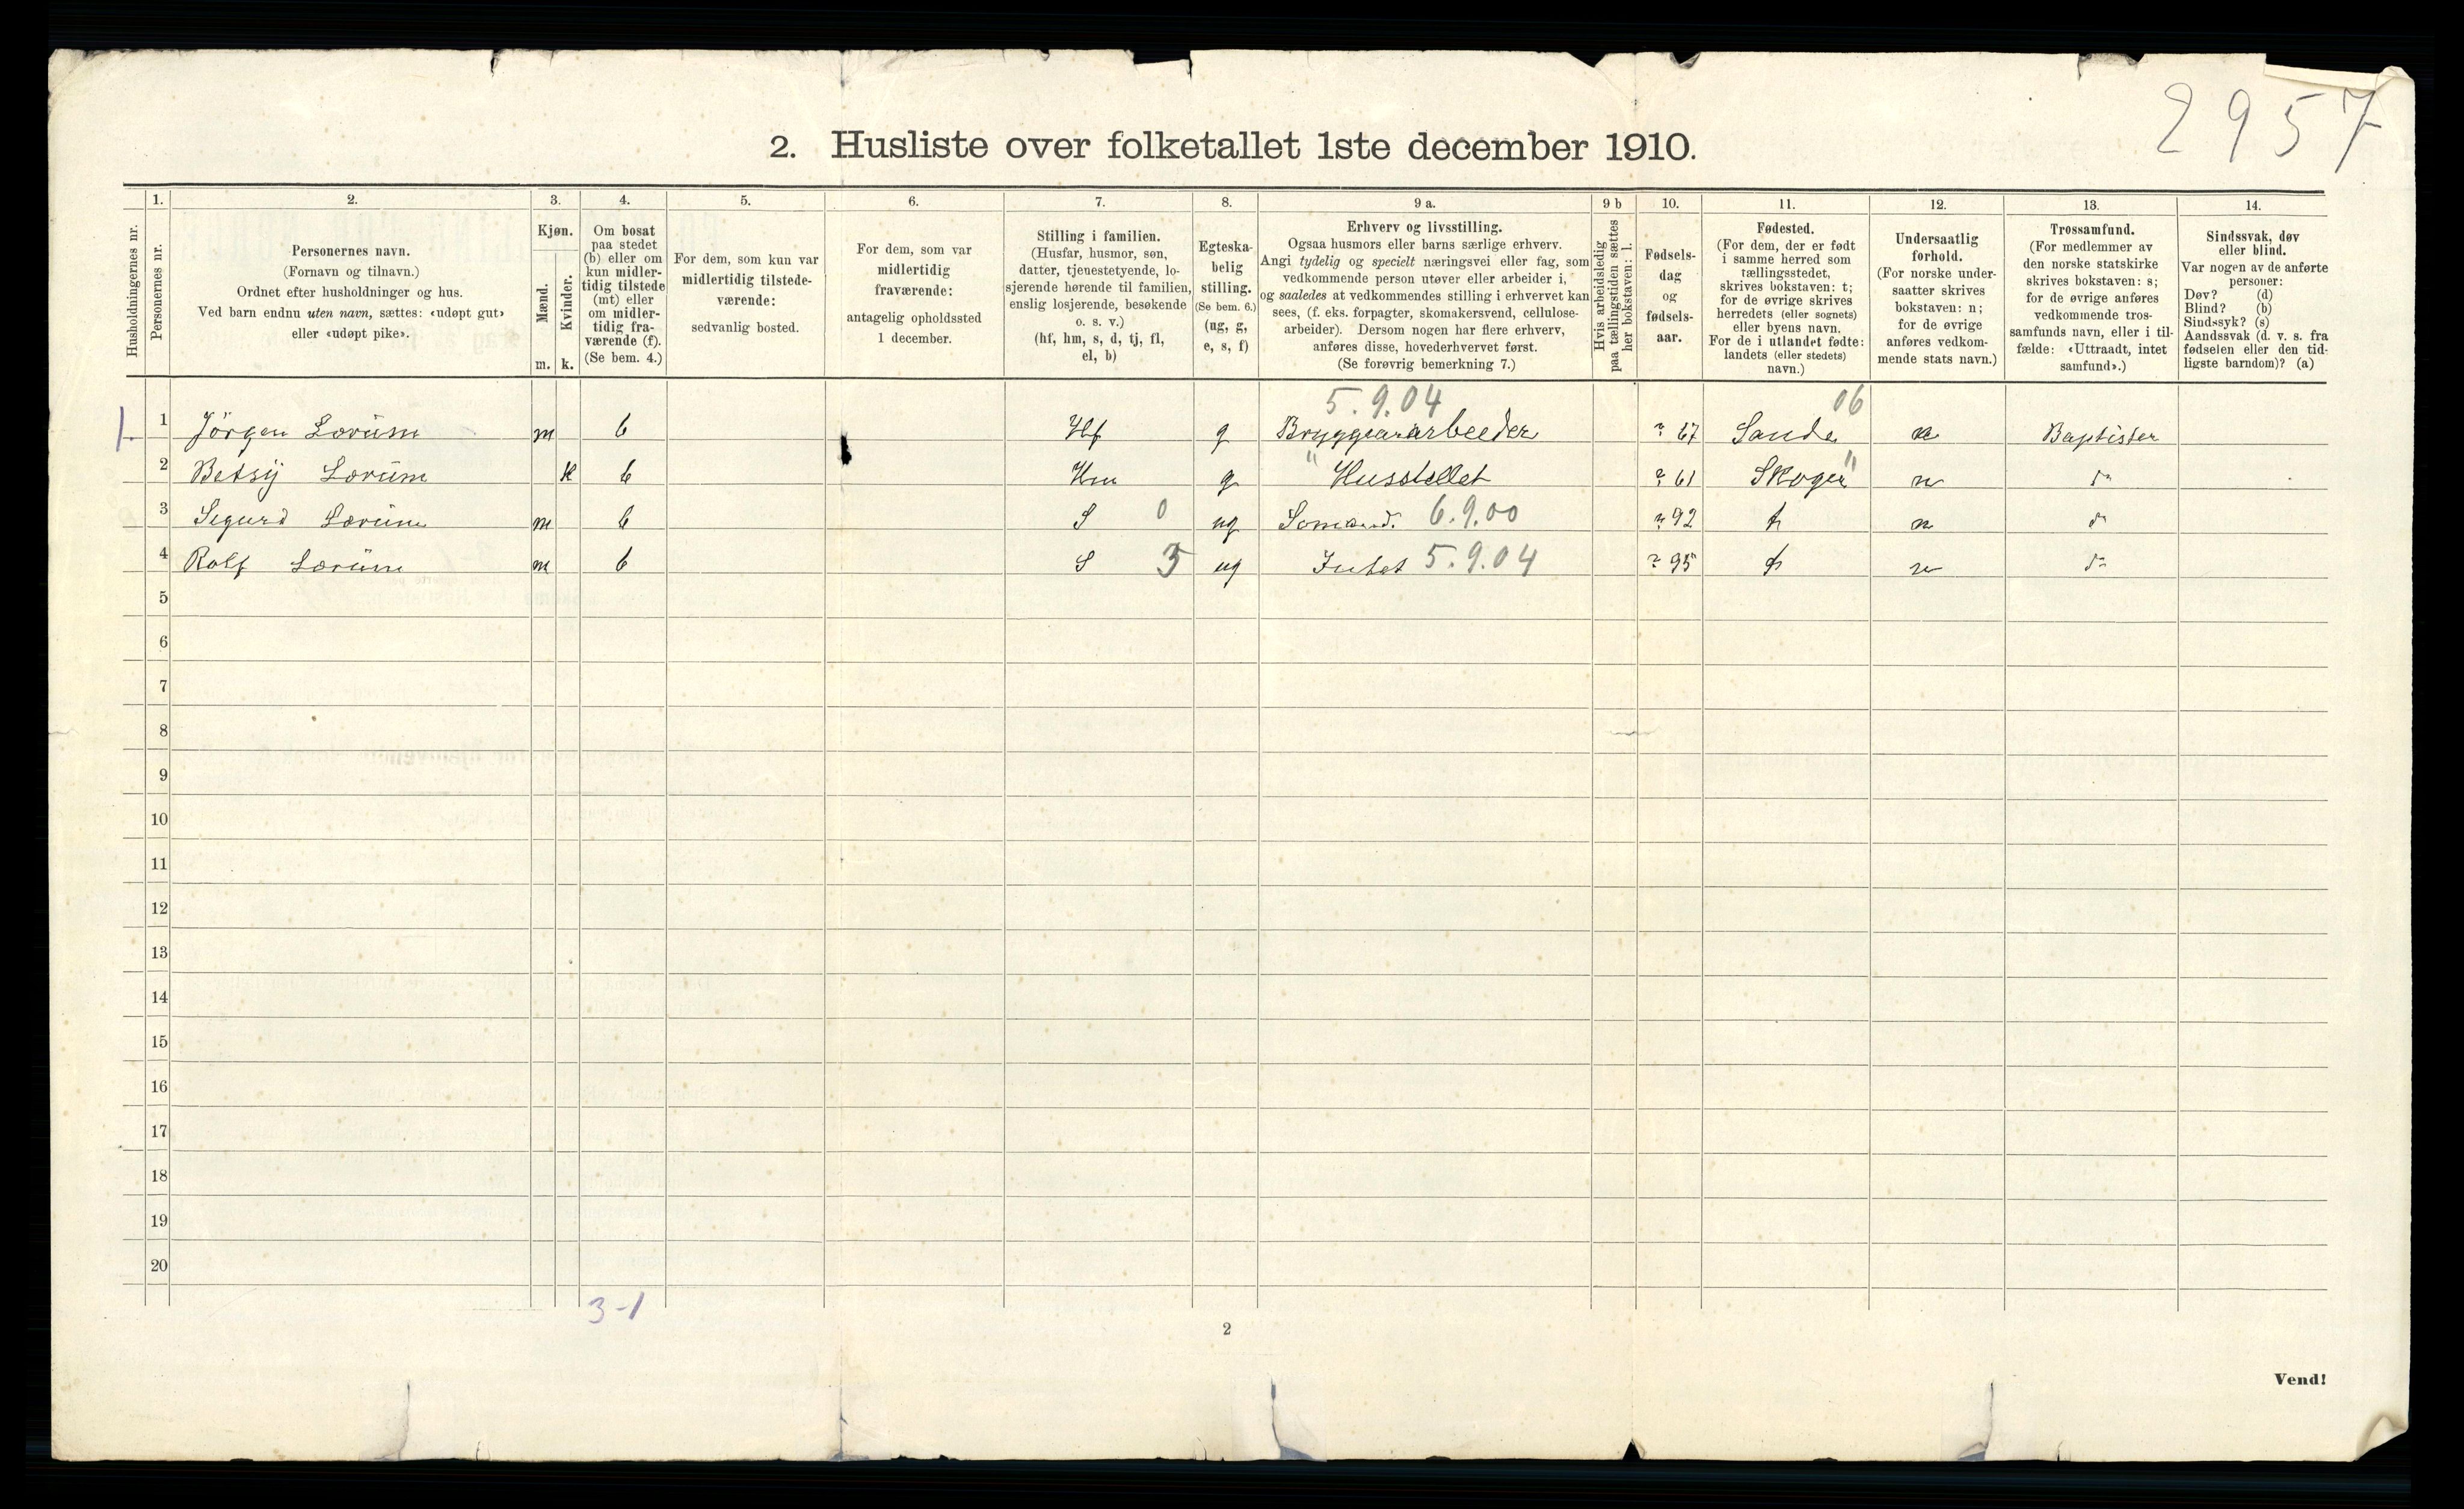 2957
2. Husliste over folketallet 1ste december 1910.
Husholdningernes nr.
1. Personernes nr.
2. Personernes navn.
(Fornavn og tilnavn.)
Ordnet efter husholdninger og hus.
Ved barn endnu uten navn, sættes: «udøpt gut»
eller «udøpt pike».
3. Kjøn.
Mænd. m.
Kvinder. k.
4. Om bosat
paa stedet
(b) eller om
kun midler-
tidig tilstede
(mt) eller
om midler-
tidig fra-
værende (f).
(Se bem. 4.)
5. For dem, som kun var
midlertidig tilstede-
værende:
sedvanlig bosted.
6. For dem, som var
midlertidig
fraværende:
antagelig opholdssted
1 december.
7. Stilling i familien.
(Husfar, husmor, søn,
datter, tjenestetyende, lo-
sjerende hørende til familien,
enslig losjerende, besøkende
o. s. v.)
(hf, hm, s, d, tj, fl,
el, b)
8. Egteska-
belig
stilling.
(Se bem. 6.)
(ug, g,
e, s, f)
9 a. Erhverv og livsstilling.
Ogsaa husmors eller barns særlige erhverv.
Angi tydelig og specielt næringsvei eller fag, som
vedkommende person utøver eller arbeider i,
og saaledes at vedkommendes stilling i erhvervet kan
sees, (f. eks. forpagter, skomakersvend, cellulose-
arbeider). Dersom nogen har flere erhverv,
anføres disse, hovederhvervet først.
(Se forøvrig bemerkning 7.)
9 b Hvis arbeidsledig
paa tællingstiden sættes
her bokstaven: l.
10. Fødsels-
dag
og
fødsels-
aar.
11. Fødested.
(For dem, der er født
i samme herred som
tællingsstedet,
skrives bokstaven: t;
for de øvrige skrives
herredets (eller sognets)
eller byens navn.
For de i utlandet fødte:
landets (eller stedets)
navn.)
12. Undersaatlig
forhold.
(For norske under-
saatter skrives
bokstaven: n;
for de øvrige
anføres vedkom-
mende stats navn.)
13. Trossamfund.
(For medlemmer av
den norske statskirke
skrives bokstaven: s;
for de øvrige anføres
vedkommende tros-
samfunds navn, eller i til-
fælde: «Uttraadt, intet
samfund».)
14. Sindssvak, døv
eller blind.
Var nogen av de anførte
personer:
Døv? (d)
Blind? (b)
Sindssyk? (s)
Aandssvak (d. v. s. fra
fødselen eller den tid-
ligste barndom)? (a)
5.9.04 06
1. 1 Jörgen Lorüm m b Hf g Bryggeriarbeider 67 Sande n Baptister
2 Betsy Lorüm k b Hm g " Husstellet 61 Skoger " n do
3 Sigurd Lorüm m b S 0 ug Sømand. 6.9.00 92 n do
4 Rolf Lorüm m b S 3 ug Intet 5.9.04 95 n do
5
6
7
8
9
10
11
12
13
14
15
16
17
18
19
20
3-1
2
Vend!